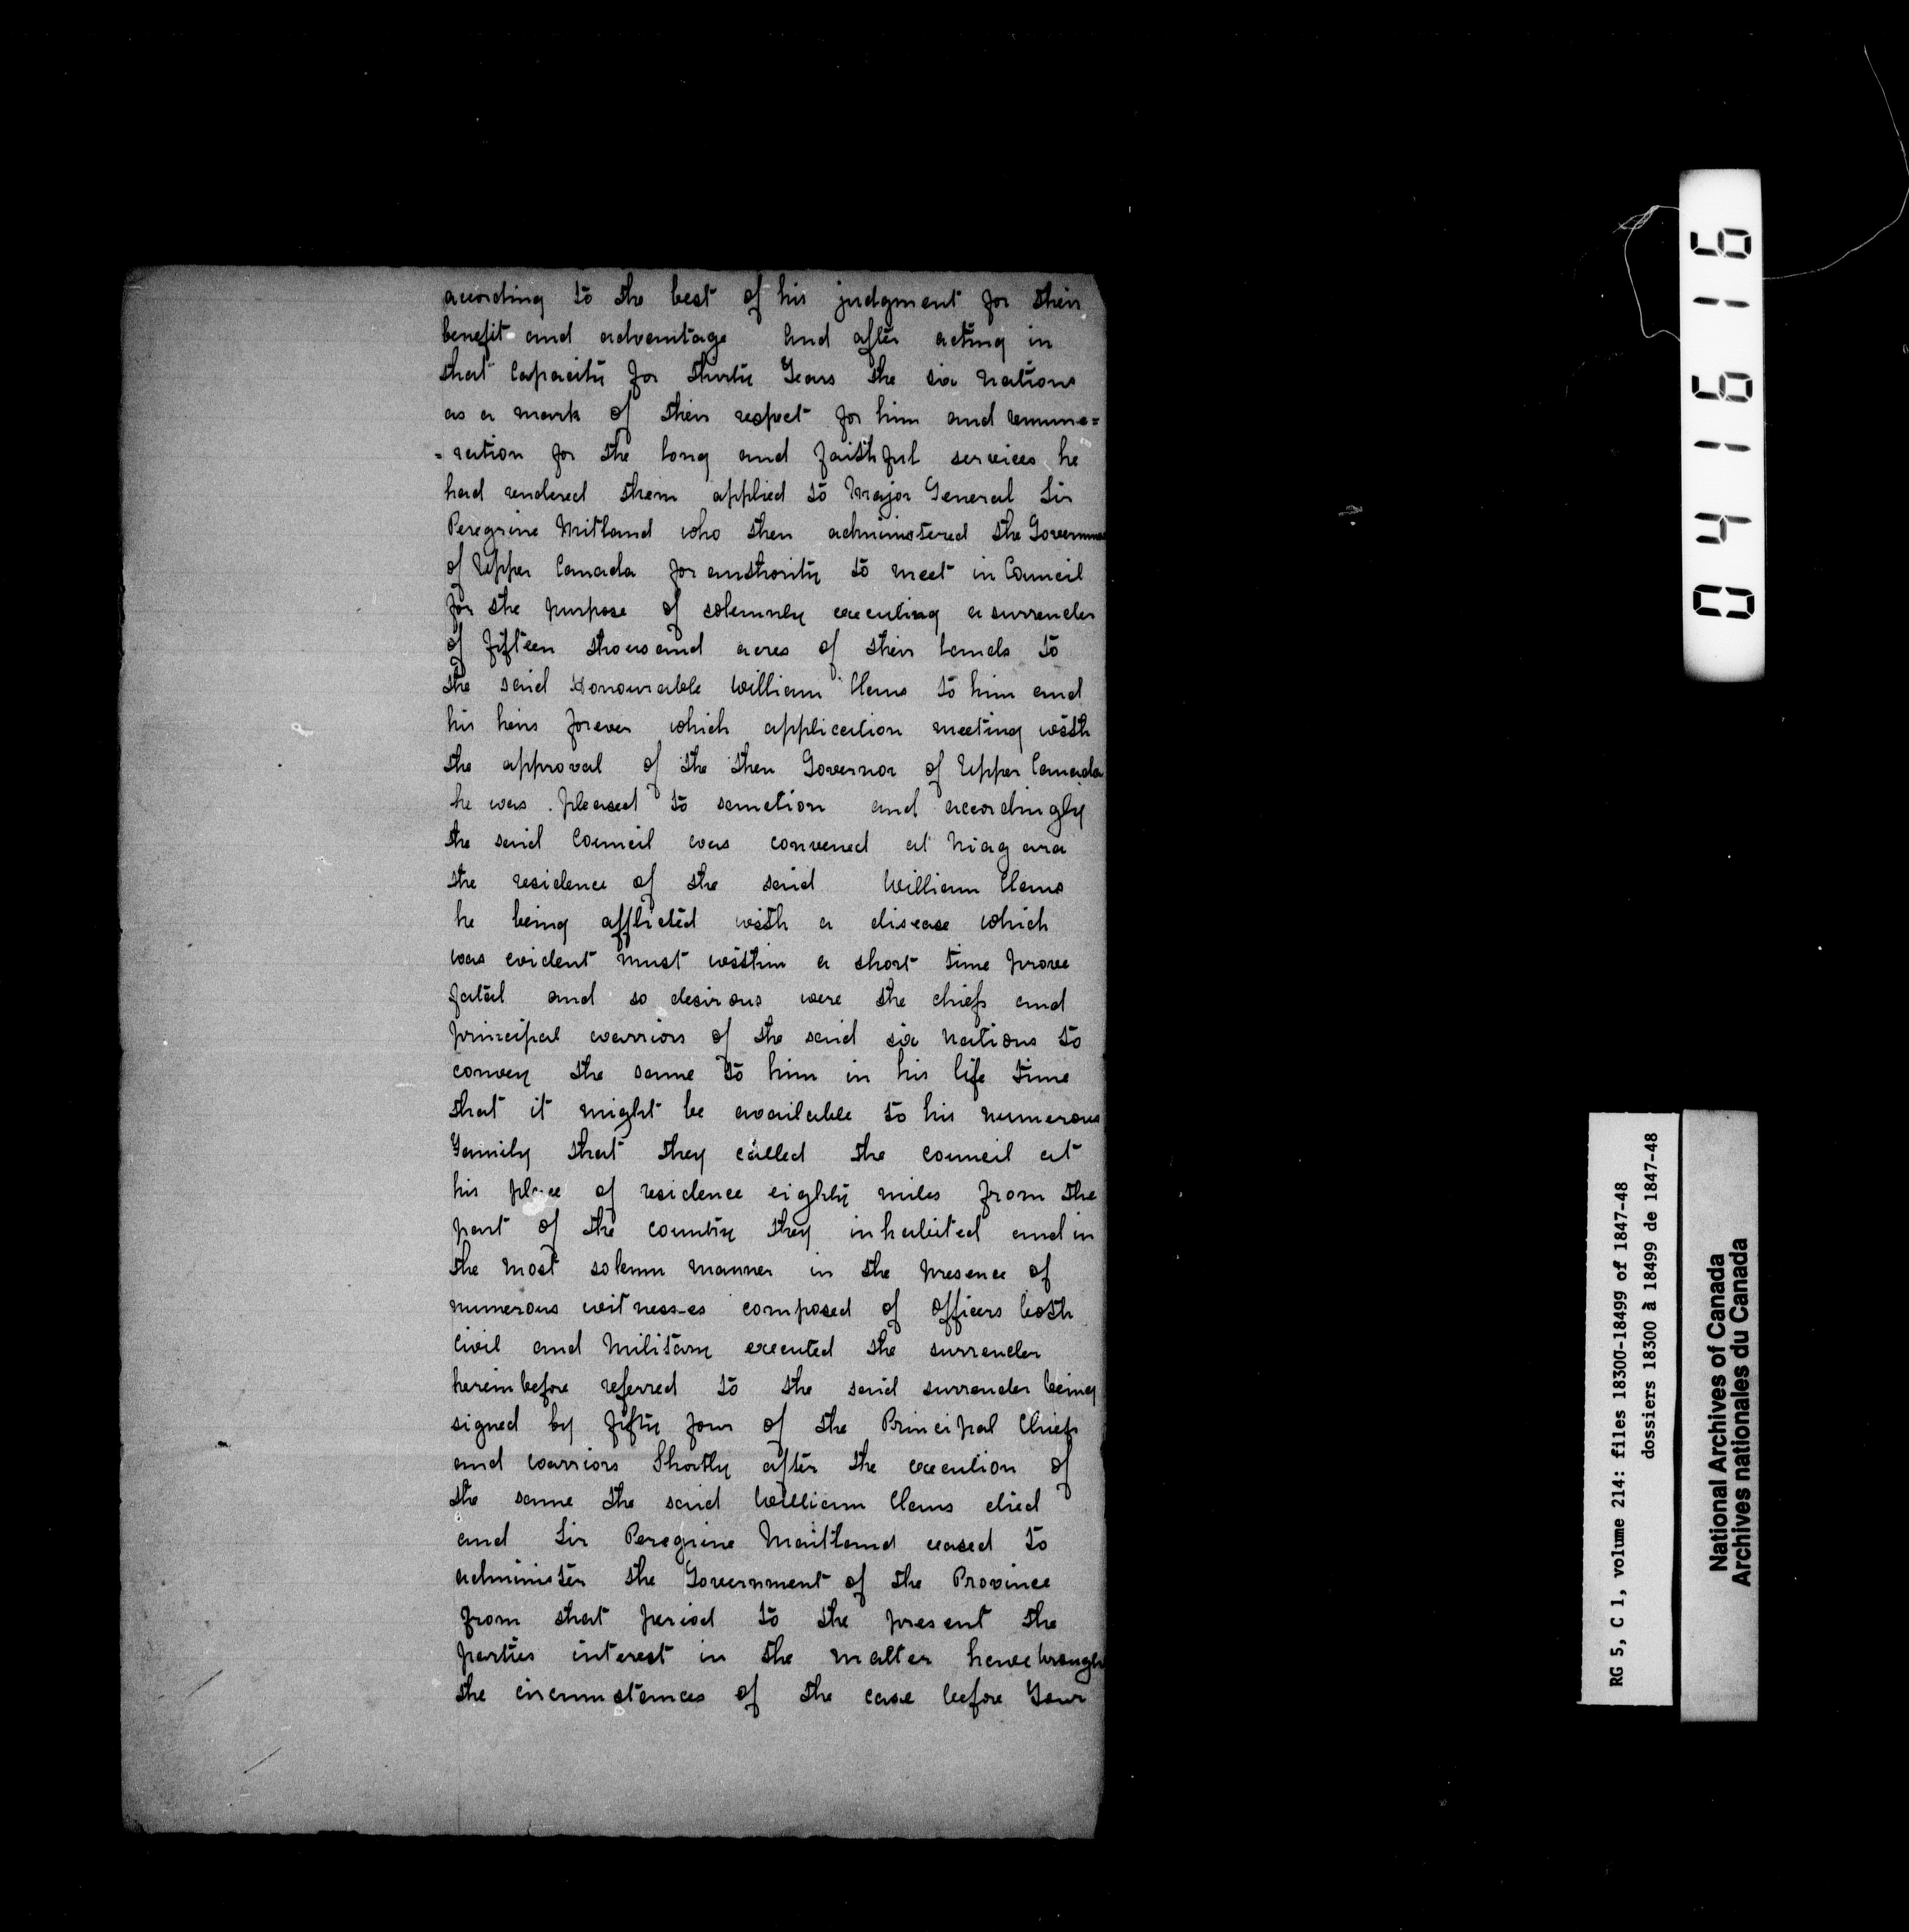 according to the best of his judgment for their
benefit and advantage And after acting in
that Capacity for thirty Years the six Nations
as a mark of their respect for him and remune=
=ration for the long and faithful services he
had rendered them applied to Major General Sir
Peregrine Mitland who then administered the Governme
of Upper Canada for authority to meet in Council
for the purpose of solemnly executing a surrender
of fifteen thousand acres of their lands to
the said Honourable William Claus to him and
his heirs forever which application meeting with
the approval of the then Governor of Upper Canada
he was pleased to sanction and accordingly
the said Council was convened at Niagara
the residence of the said William Claus
he being afflicted with a disease which
was evident must within a short time prove
fatal and so desirous were the chiefs and
principal warriors of the said six Nations to
convey the same to him in his life time
that it might be available to his numerous
Family that they called the council at
his place of residence eighty miles from the
part of the country they inhabited and in
the most solemn manner in the presence of
numerous witness-es composed of Officers both
Civil and Military executed the surrender
hereinbefore referred to the said surrender being
signed by fifty four of the Principal Chiefs
and warriors Shortly after the execution of
the same the said William Claus died
and Sir Peregrine Maitland ceased to
administer the Government of the Province
from that period to the present the
parties interest in the matter have brough
the circumstances of the case before Your
041616
RG 5, C 1, volume 214: files 18300-18499 of 1847-48
dossiers 18300 à 18499 de 1847-48
National Archives of Canada
Archives nationales du Canada